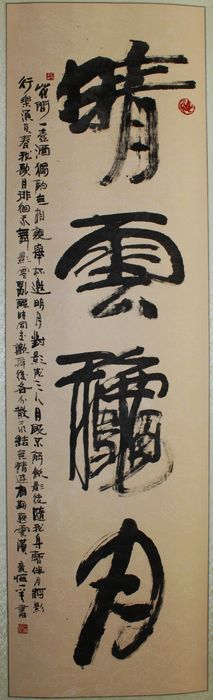 晴雲龝月
花間一壺酒獨酌無相親舉杯邀明月對影成三人月既不解飲影徒隨我身暫伴月將影
行樂須及春我歌月徘徊我舞影零亂醒時同交歡醉後各分散永結無情遊相期邈雲漢 書